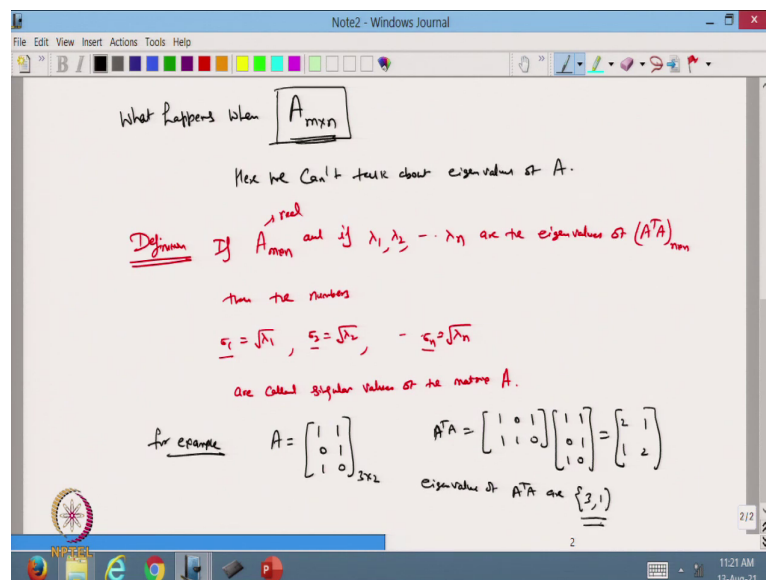 Note2 - Windows Journal
File Edit View Insert Actions Tools Help
What happens when A m×n
Here we can't talk about eigenvalues of A.
real
Definition If A m×n and if λ1, λ2, -- λn are the eigenvalues of (AᵀA) n×n
then the numbers
σ1 = √λ1, σ2 = √λ2, - σn = √λn
are called singular values of the matrix A.
for example A = [1 1; 0 1; 1 0] 3×2 AᵀA = [1 0 1; 1 1 0] [1 1; 0 1; 1 0] = [2 1; 1 2]
eigenvalues of AᵀA are {3,1}
NPTEL
2/2
2
11:21 AM
13-Aug-21